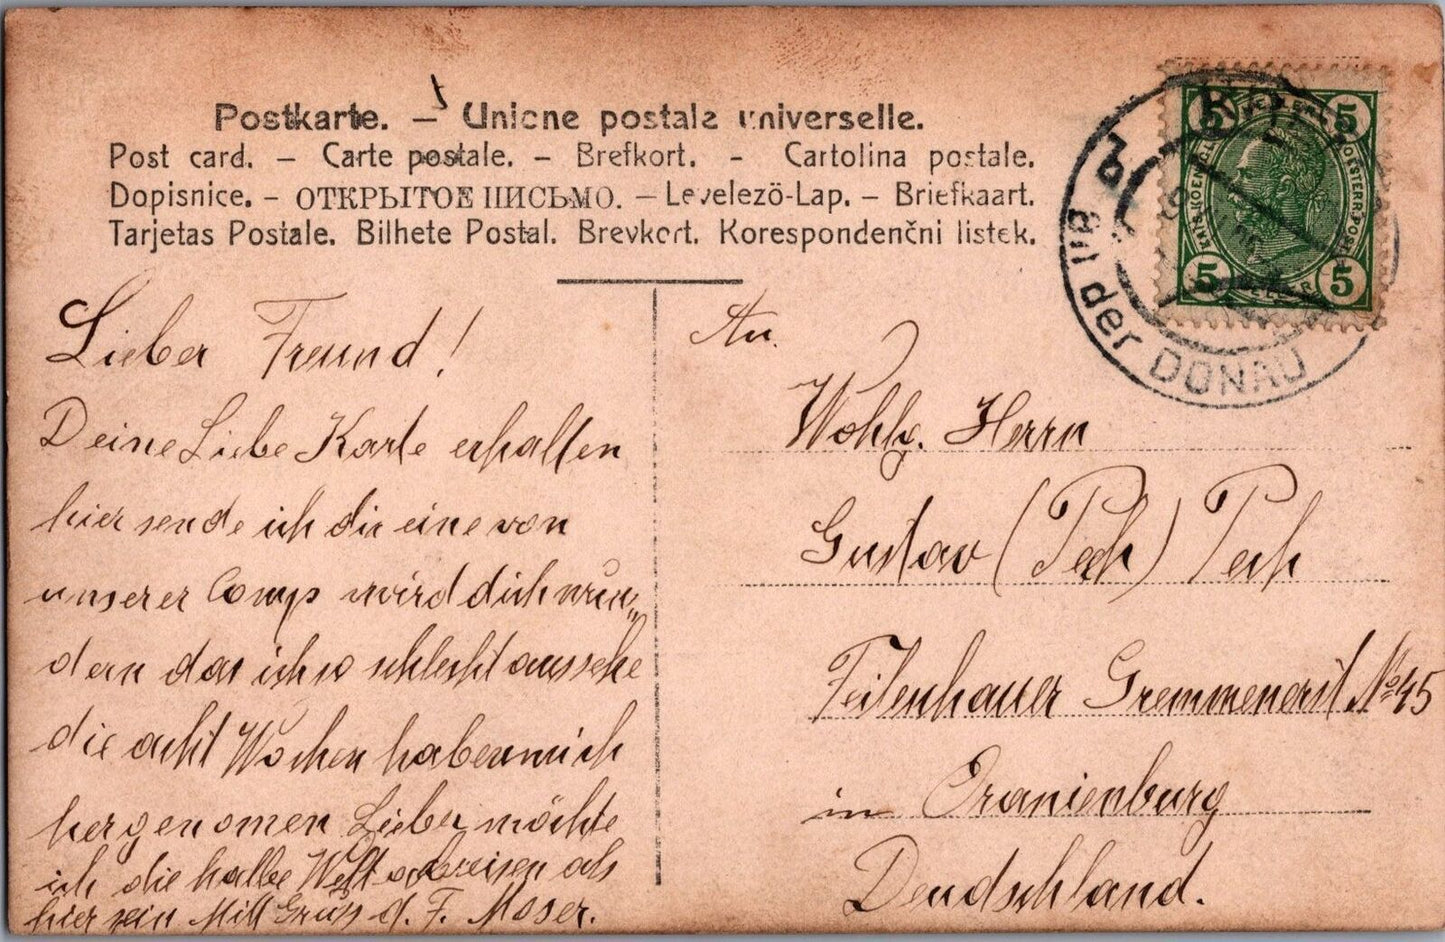 Postkarte. – Unione postale universelle.
Post card. – Carte postale. – Brefkort. - Cartolina postale.
Dopisnice. – ОТКРЫТОЕ ПИСЬМО. – Levelezö-Lap. – Briefkaart.
Tarjetas Postale. Bilhete Postal. Brevkort. Korespondenčni listek.
5 5
5 5
an der DONAU
Lieber Freund!
Deine Liebe Karte erhalten
hier sende ich dir eine von
unserer Comp wird dich wun„
dern das ich so schlecht aussehe
die acht Wochen haben mich
hergenomen Lieber möchte
ich die halbe Welt abreisen als
hier sein Mitt Gruss d. F. Moser.
An.
Wohlg. Herrn
Gustav (Pech) Pech
Feilenhauer Gremmenerst No 45
in Oranienburg
Deudschland.